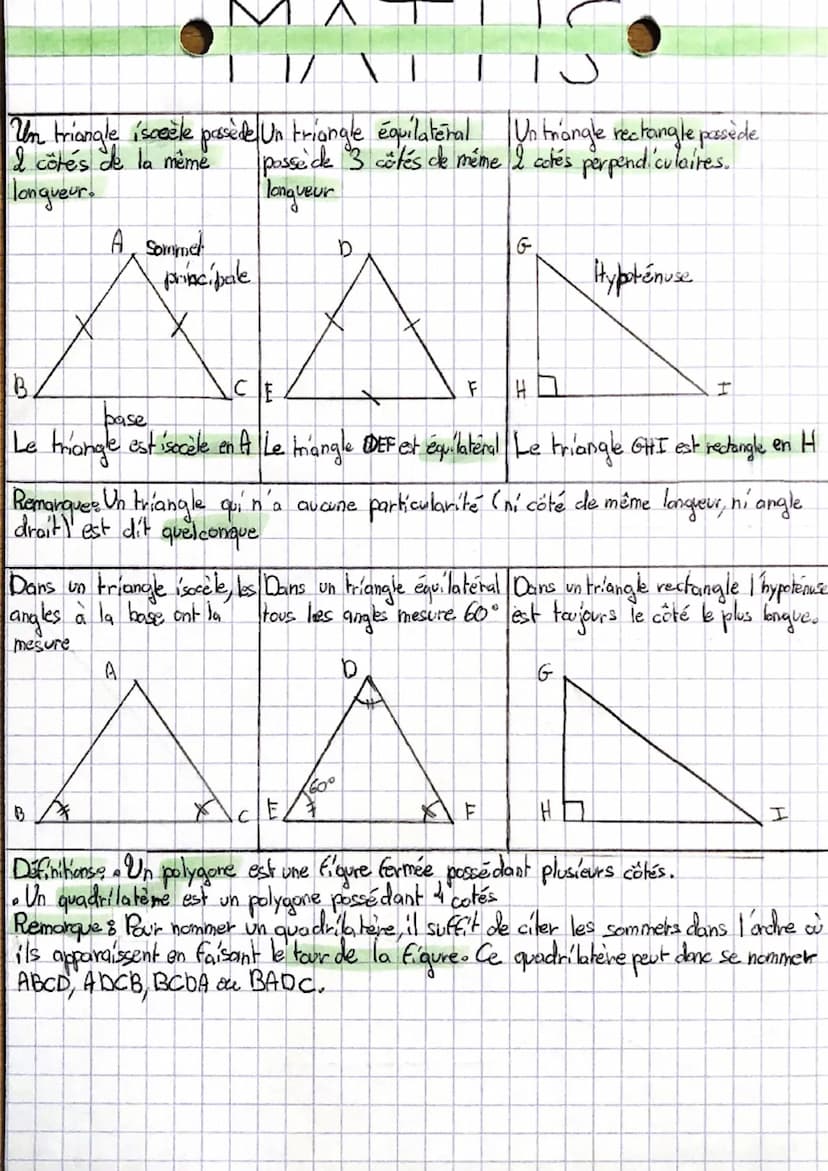 MATHS
Un triangle isocèle possède
2 côtés de la même
longueur.
Un triangle équilatéral
possède 3 côtés de même
longueur
Un triangle rectangle possède
2 cotés perpendiculaires.
A
Sommet
principale
B
C
base
D
E
F
G
Hypoténuse
H
I
Le triangle est isocèle en A
Le triangle DEF est équilatéral
Le triangle GHI est rectangle en H
Remarque: Un triangle qui n'a aucune particularité (ni côté de même longueur, ni angle
droit) est dit quelconque
Dans un triangle isocèle, les
angles à la base ont la
mesure
Dans un triangle équilatéral
tous les angles mesure 60°
Dans un triangle rectangle l'hypoténuse
est toujours le côté le plus longue.
A
B
C
D
60°
E
F
G
H
I
Définitions: • Un polygone est une figure fermée possédant plusieurs côtés.
• Un quadrilatère est un polygone possédant 4 cotés
Remarque: Pour nommer un quadrilatère, il suffit de citer les sommets dans l'ordre où
ils apparaissent en faisant le tour de la figure. Ce quadrilatère peut donc se nommer
ABCD, ADCB, BCDA ou BADC.